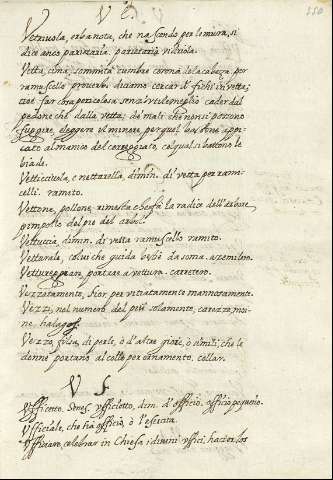 V E.
110
Vetriuola, erba nota, che nasce ndo per le mura, si
dice anco paritaria. parietaria vidriola.
Vetta, cima, sommità cumbre corona de la cabeza. per
ramuscello proverb. diciamo cercar i fichi in vetta;
cioè far cosa pericolosa senza utile meglio cader dal
pedone che dalla vetta; de' mali che non si possono
fuggire, eleggere il minore per quel bastone appi-
cato al manico del coreggiato, col qual si battono le
biade.
Vetticciuola, e nettarella, dimin. di vetta per ramu-
celli. ramito.
Vettone, pollone, rimesta e la radice dell'arbore
pimpollo del pie del arbol.
Vettuccia, dimin. di vetta ramuscello ramito.
Vetturale, colui che guida bestie da soma. azemilero.
Vettureggiare, portare a vettura. carretero.
Vezzosamente, Fior. per vitiatamente mannosamente.
Vezzi, nel numero del più solamente, carezze, moi-
ne. halagos.
Vezzo, filza, di perle, ò d'altre gioie, ò simili, che le
donne portano al collo per ornamento. collar.
V f.
Ufficetto, Senes. ufficiotto, dim. d'officio. officio pequeño.
Ufficiale, che ha officio, ò l'esercita.
Ufficiare, celebrar in Chiesa i divini uffici, hacer los